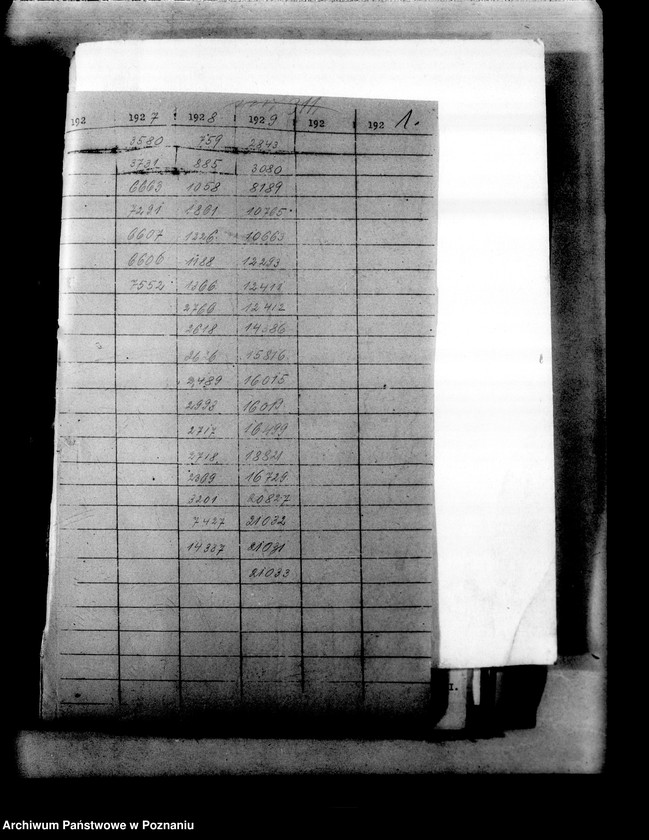 192 1927 1928 1929 192 192 1.
3580 759 2843
3731 885 3080
6663 1058 8189
7291 1861 10765
6607 1226 10663
6606 1188 12293
7552 1366 12411
2766 12412
2618 14386
2626 15816
2489 16015
2993 16019
2717 16499
2718 18821
2309 16729
3201 20827
7427 21032
14337 21031
21033
I.
Archiwum Państwowe w Poznaniu